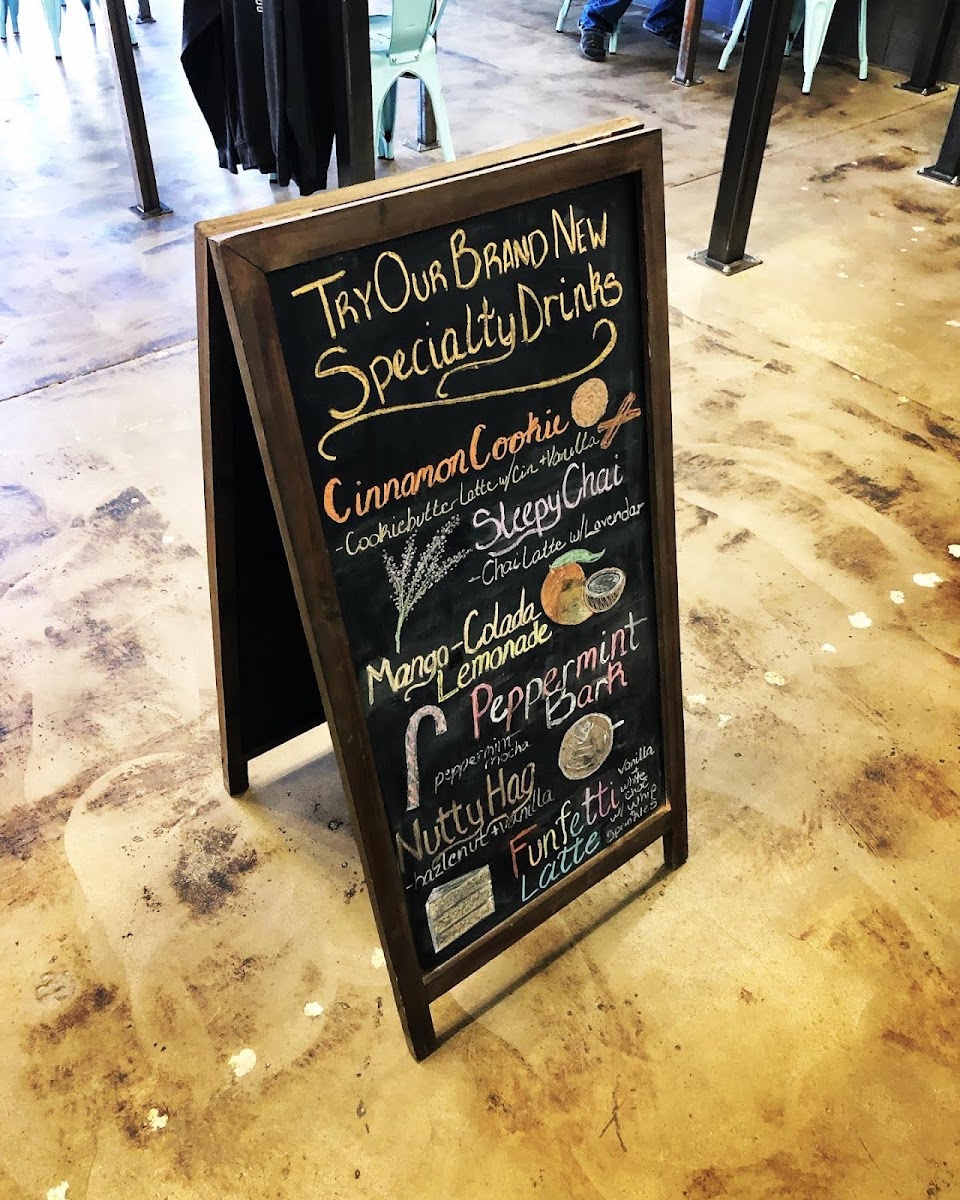 Try Our Brand New
Specialty Drinks
Cinnamon Cookie
-Cookiebutter Latte w/Cin + Vanilla
Sleepy Chai
-Chai Latte w/Lavendar
Mango-Colada
Lemonade
Peppermint
Bark
peppermint
mocha
Nutty Hag
-hazlenut + vanilla
Funfetti
Latte
vanilla
white
choc
w/ whip
sprinkles